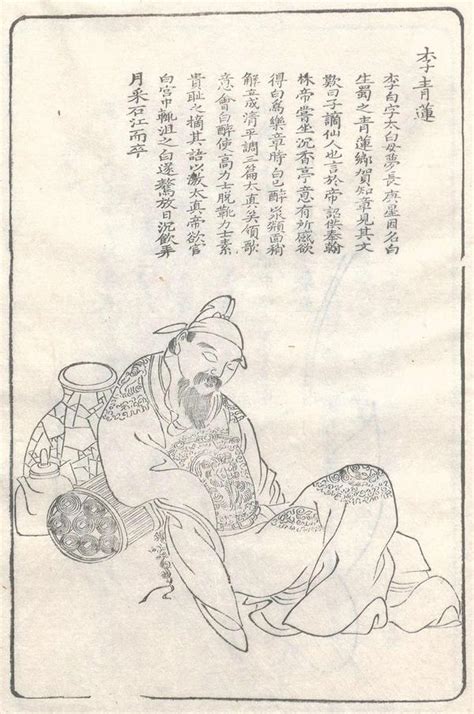 李青蓮
李白字太白母夢長庚星因名白
生蜀之青蓮鄉賀知章見其文
歎曰子謫仙人也言於帝詔供奉翰
林帝嘗坐沉香亭意有所感欲
得白爲樂章時白已醉頮面稍
解立成清平調三篇太真笑領歌
意會白醉使高力士脫靴力士素
貴恥之摘其語以激太真帝欲官
白宮中輒沮之白遂驁放日沉飲弄
月采石江而卒